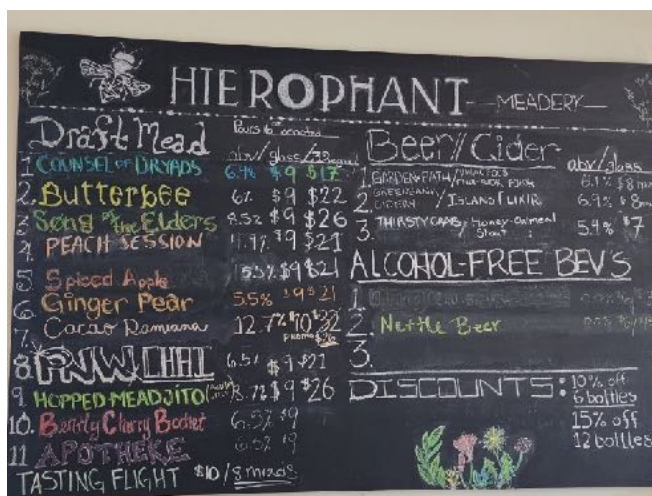 HIEROPHANT — MEADERY —
Draft Mead
abv/glass/
1. COUNSEL OF DRYADS 6.9% $9 $17
2. Butterbee 6% $9 $22
3. Song of the Elders 8.5% $9 $26
4. PEACH SESSION $9 $21
5. Spiced Apple $9 $21
6. Ginger Pear 5.5% $9 $21
7. Cacao Damiana 12.7% $10 $32
8. PNW CHAI 6.5% $9 $21
9. HOPPED MEADJITO 8.7% $9 $26
10. Bently Cherry Bochet 6.5% $9
11 APOTHEKE 6.5% $9
TASTING FLIGHT $10/8 meads
Beer/Cider
abv/glass
1. GARDEN PATH/ 6.1% $8
2. CIDERY / ISLAND ELIXIR 6.9% $8
3. THIRSTY CRAB/Honey-Oatmeal Stout 5.4% $7
ALCOHOL-FREE BEVS
1.
2. Nettle Beer
3.
DISCOUNTS:
10% off
6 bottles
15% off
12 bottles